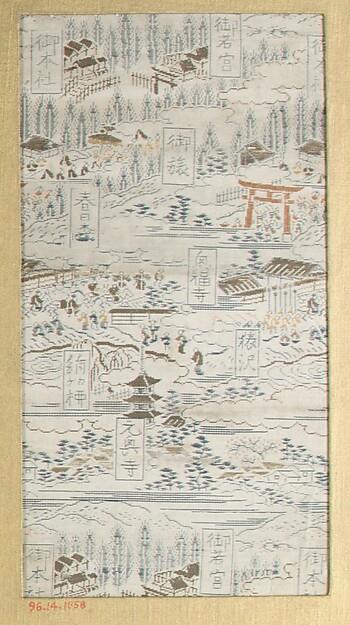 御本社
御若宮
御旅
春日森
興福寺
猿沢
絹かけ柳
元興寺
御若宮
御本社
御本
96.14.1858